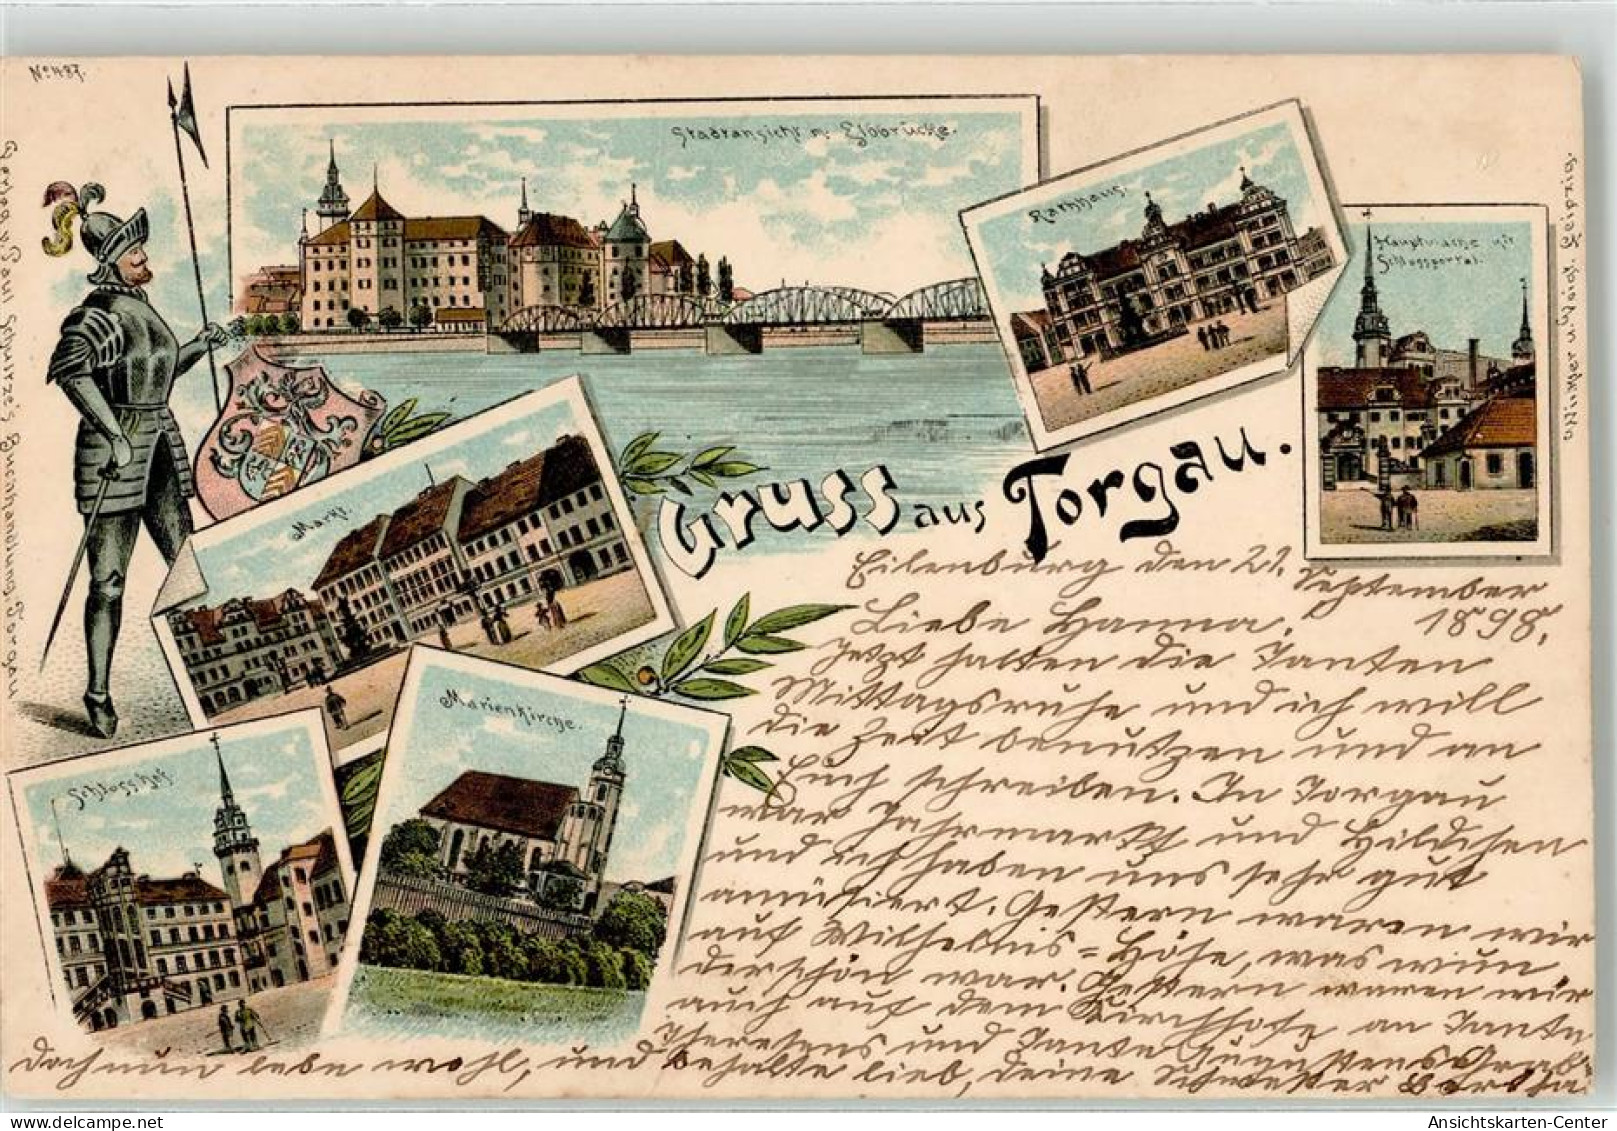 No 487.
Stadtansicht m. Elbbrücke.
Rathhaus.
Hauptwache mit
Schlossportal.
Markt.
Gruss aus Torgau.
Marienkirche.
Schlosshof.
Verlag v. Paul Schultze's Buchhandlung, Torgau
Winkler u. Voigt. Leipzig.
Eilenburg den 21. September
1898.
Liebe Hanna,
Jetzt halten die Tanten
Mittagsruhe und ich will
die Zeit benutzen und an
Euch schreiben. In Torgau
war Jahrmarkt und Hildchen
und ich haben uns sehr gut
amüsiert. Gestern waren wir
auf Wilhelmis=Höhe, was wun
derschön war. Gestern waren wir
auch auf dem Kirchhofe an Tante
Theresens und Tante Augustens Grab.
Doch nun lebe wohl, und behalte lieb, deine Schwester Bertha.
Ansichtskarten-Center